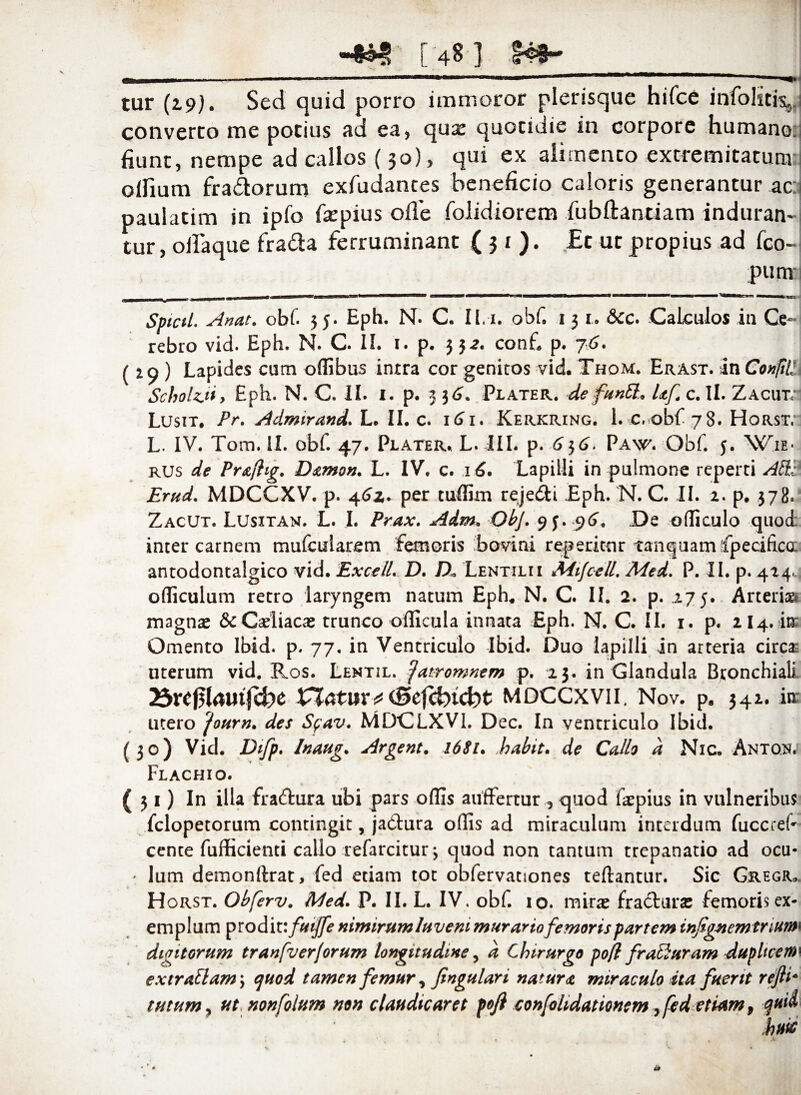 [48]
tur (29). Sed quid porro immoror plerisque hiſce inſolitis,
converto me potius ad ea, quæ quotidie in corpore humano
fiunt, nempe ad callos (30), qui ex alimento extremitatum
oſſium fractorum exſudantes beneficio caloris generantur ac
paulatim in ipſo ſæpius oſſe ſolidiorem ſubſtantiam induran-
tur, oſſaque fracta ferruminant (31). Et ut propius ad ſco-
pum
Spicil. Anat. obſ. 35. Eph. N. C. II. 1. obſ. 131. &c. Calculos in Ce-
rebro vid. Eph. N. C. II. 1. p. 332. conf. p. 76.
(29) Lapides cum oſſibus intra cor genitos vid. Thom. Erast. in Conſil.
Scholzii, Eph. N. C. II. 1. p. 336. Plater. de funct. læſ. c. II. Zacut.
Lusit. Pr. Admirand. L. II. c. 161. Kerkring. l. c. obſ. 78. Horst.
L. IV. Tom. II. obſ. 47. Plater. L. III. p. 636. Paw. Obſ. 5. Wie-
rus de Præſtig. Dæmon. L. IV. c. 16. Lapilli in pulmone reperti Act.
Erud. MDCCXV. p. 462. per tuſſim rejecti Eph. N. C. II. 2. p. 378.
Zacut. Lusitan. L. I. Prax. Adm. Obſ. 95. 96. De oſſiculo quod
inter carnem muſcularem femoris bovini reperitur tanquam ſpecifico
antodontalgico vid. Excell. D. D. Lentilii Miſcell. Med. P. II. p. 424.
oſſiculum retro laryngem natum Eph. N. C. II. 2. p. 275. Arteriæ
magnæ & Cæliacæ trunco oſſicula innata Eph. N. C. II. 1. p. 214. in
Omento Ibid. p. 77. in Ventriculo Ibid. Duo lapilli in arteria circa
uterum vid. Ros. Lentil. Jatromnem p. 23. in Glandula Bronchiali
Breßlauiſche Natur-Geſchicht MDCCXVII. Nov. p. 342. in
utero Journ. des Sçav. MDCLXVI. Dec. In ventriculo Ibid.
(30) Vid. Diſp. Inaug. Argent. 1681. habit. de Callo à Nic. Anton.
Flachio.
(31) In illa fractura ubi pars oſſis auffertur, quod ſæpius in vulneribus
ſclopetorum contingit, jactura oſſis ad miraculum interdum ſuccreſ-
cente ſufficienti callo reſarcitur; quod non tantum trepanatio ad ocu-
lum demonſtrat, ſed etiam tot obſervationes teſtantur. Sic Gregr.
Horst. Obſerv. Med. P. II. L. IV. obſ. 10. miræ fracturæ femoris ex-
emplum prodit: fuiſſe nimirum Iuveni murario femoris partem inſignem trium
digitorum tranſverſorum longitudine, à Chirurgo poſt fracturam duplicem
extractam; quod tamen femur, ſingulari naturæ miraculo ita fuerit reſti-
tutum, ut nonſolum non claudicaret poſt conſolidationem, ſed etiam, quid
huic